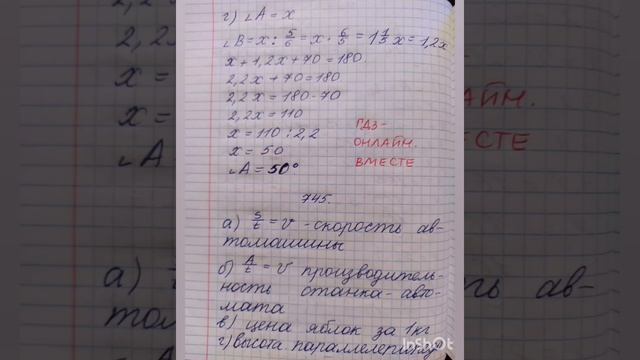 г) ∠A = x
∠B = x : 5/6 = x · 6/5 = 1 1/5 x = 1,2x
x + 1,2x + 70 = 180.
2,2x + 70 = 180
2,2x = 180 - 70
2,2x = 110
x = 110 : 2,2
x = 50
∠A = 50°
ГДЗ-
ОНЛАЙН.
ВМЕСТЕ
745.
а) S/t = v - скорость ав-
томашины
б) A/t = v производитель-
ность станка-авто-
мата
в) цена яблок за 1кг
г) высота параллелепипед
InShot